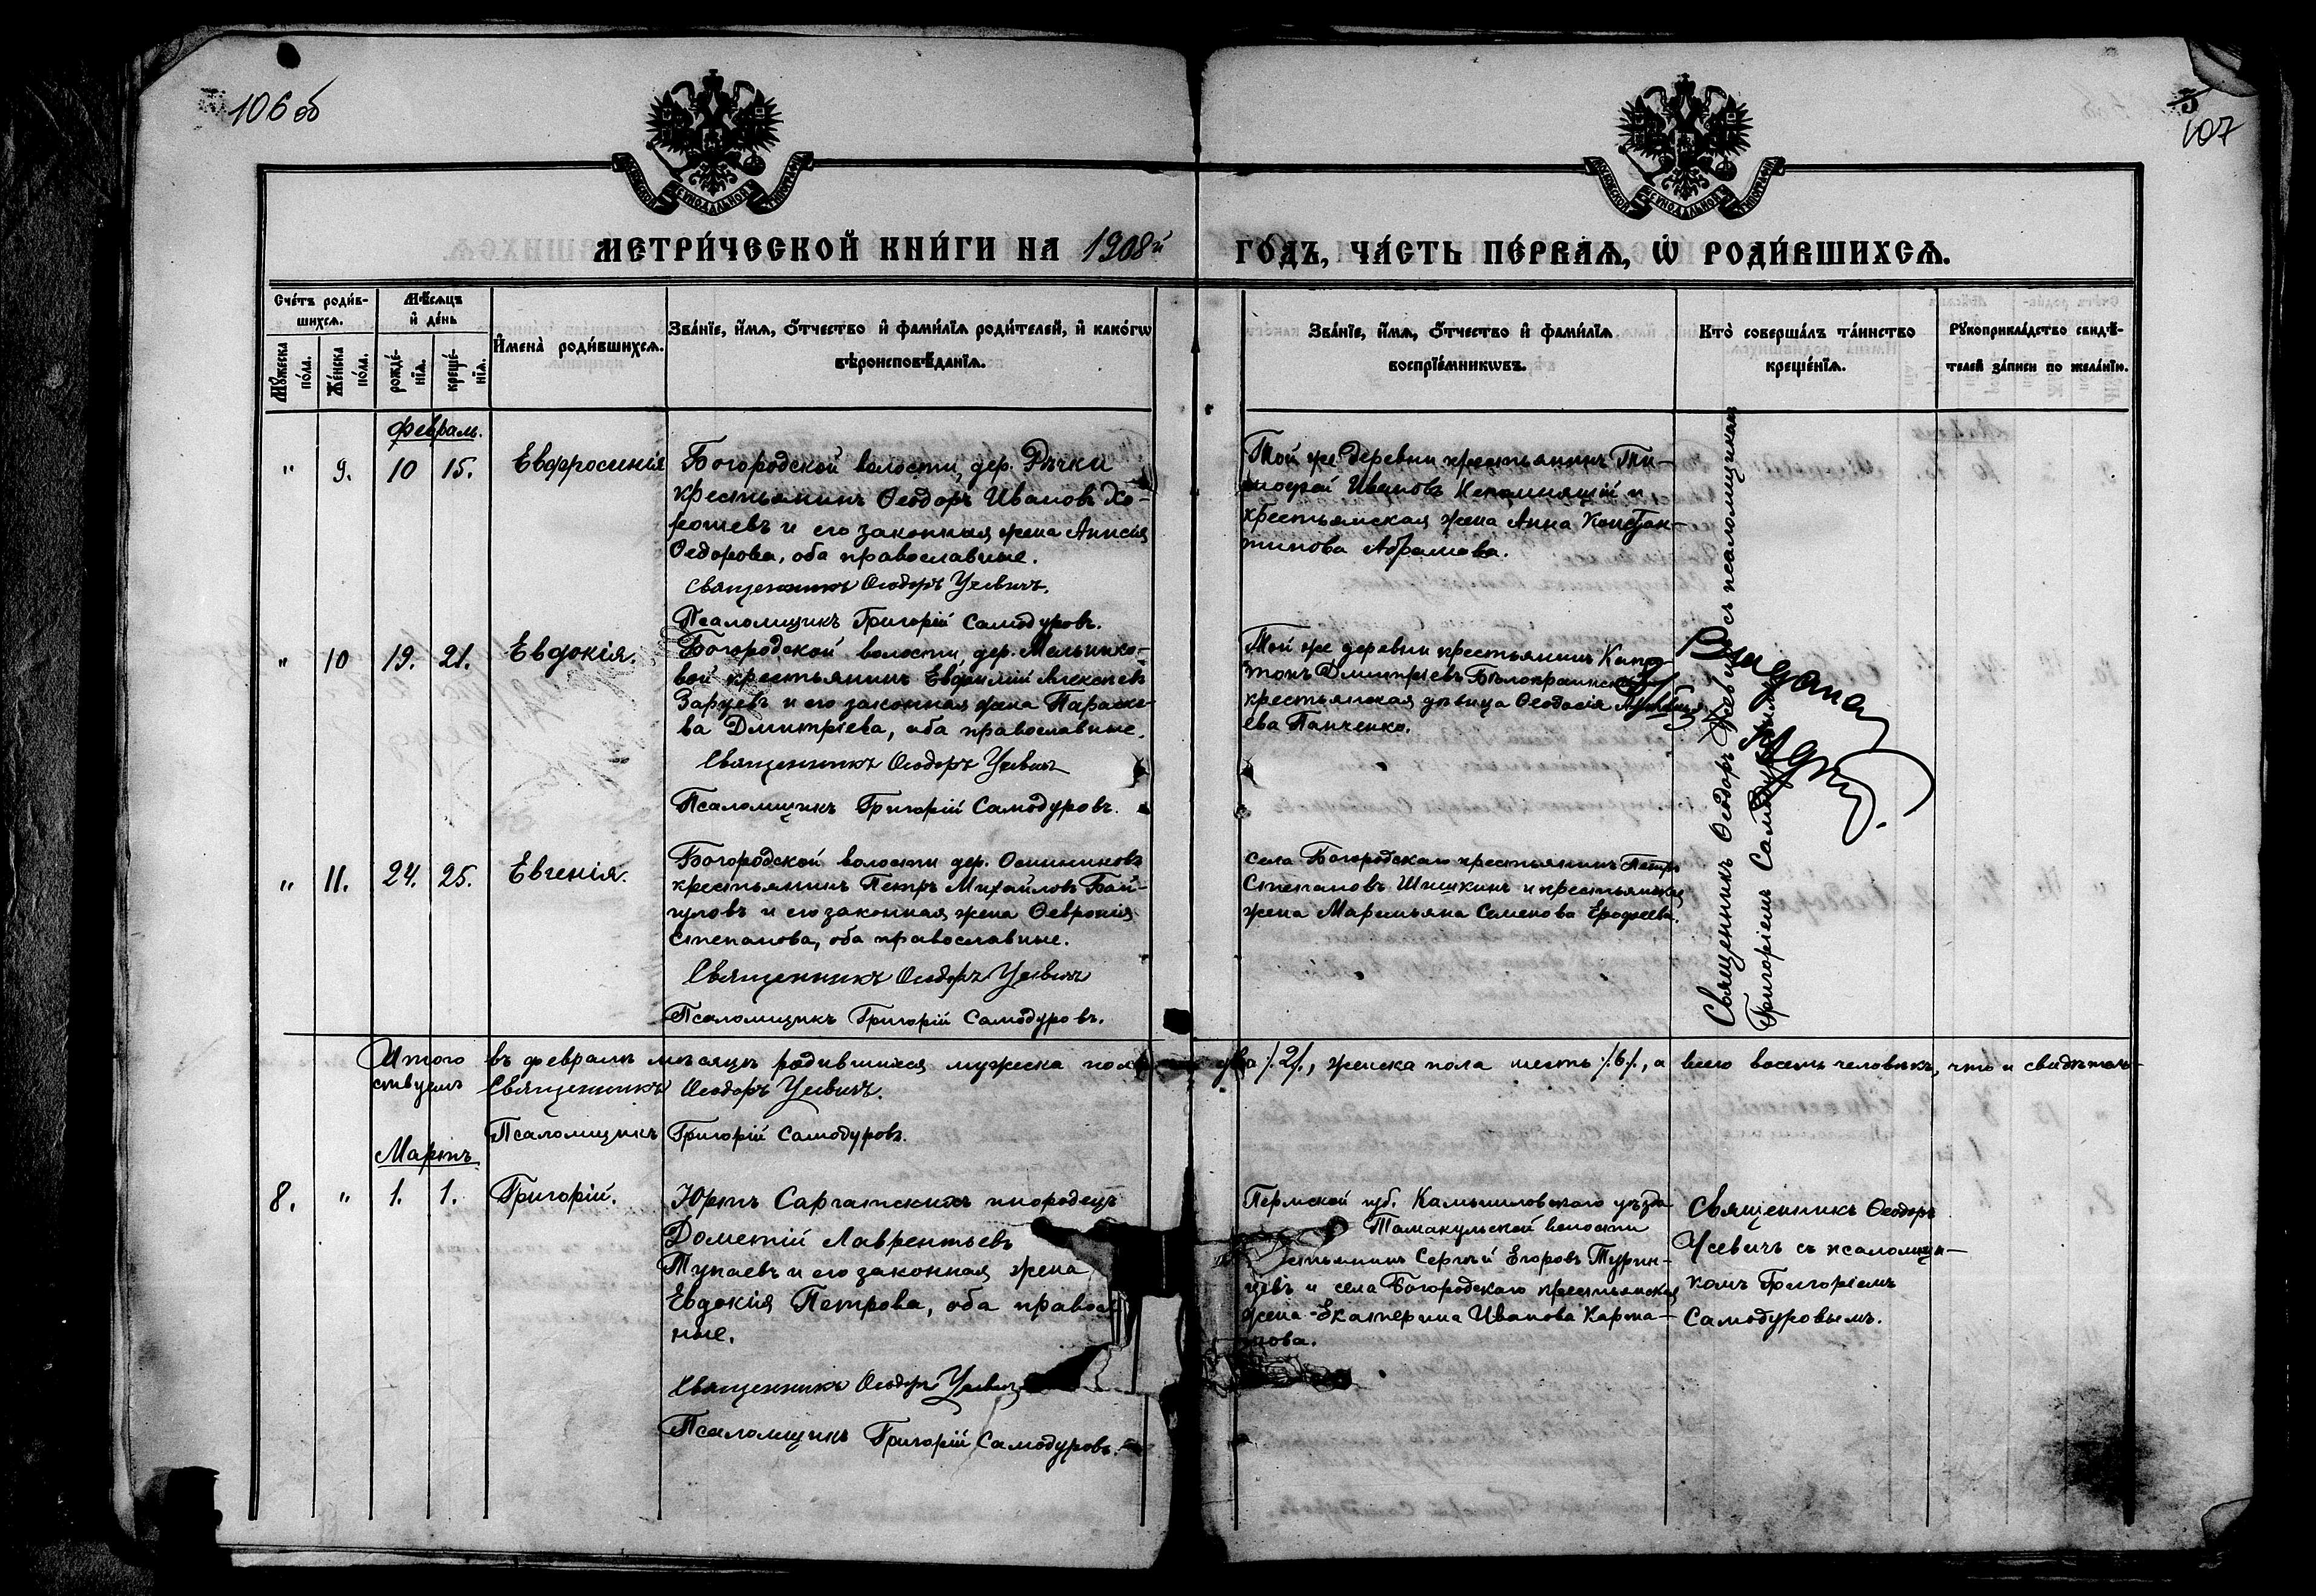 106 об
5
107
МОСКОВСКОЙ СѴНОДАЛЬНОЙ ТИПОГРАФІИ
МОСКОВСКОЙ СѴНОДАЛЬНОЙ ТИПОГРАФІИ
МЕТРИ́ЧЕСКОЙ КНИ́ГИ НА 1908й
ГО́ДЪ, ЧА́СТЬ ПЕ́РВАѦ, Ѽ РОДИ́ВШИХСѦ.
Сче́тъ роди́в-
шихсѧ.
Мѣ́сѧцъ
и҆ де́нь
Мꙋ́жеска
по́ла.
Же́нска
по́ла.
рожде́-
нїѧ.
креще́-
нїѧ.
И҆мена̀ роди́вшихсѧ.
Зва́нїе, и҆́мѧ, ѻ҆́тчество и҆ фами́лїѧ роди́телей, и҆ како́гѡ
вѣроисповѣ́данїѧ.
Зва́нїе, и҆́мѧ, ѻ҆́тчество и҆ фами́лїѧ
воспрїе́мникѡвъ.
Кто̀ соверша́лъ та́инство
креще́нїѧ.
Рꙋкоприкла́дство свидѣ́-
телей за́писи по жела́нїю.
Февраль.
" 9. 10 15. Евфросинія
Богородской волости, дер. Рѣчки
крестьянинъ Ѳеодоръ Ивановъ Хо-
рошевъ и его законная жена Анисія
Ѳедорова, оба православные.
Священникъ Ѳеодоръ Усевичъ.
Псаломщикъ Григорій Самодуровъ.
Той же деревни крестьянинъ Ти-
моѳей Ивановъ Непомнящій и
крестьянская жена Анна Констан-
тинова Абрамова.
" 10 19. 21. Евдокія.
Богородской волости, дер. Мельнико-
вой крестьянинъ Евфимій Алексѣевъ
и его законная жена Параске-
ва Димитріева, оба православные.
Священникъ Ѳеодоръ Усевичъ
Псаломщикъ Григорій Самодуровъ.
Той же деревни крестьянинъ Капи-
тонъ Димитріевъ
крестьянская дѣвица Ѳеодосія
ева Панченко.
" 11. 24. 25. Евгенія.
Богородской волости дер. Осиниковъ
крестьянинъ Петръ Михайловъ Бай-
гуловъ и его законная жена Ѳевронія
Степанова, оба православные.
Священникъ Ѳеодоръ Усевичъ
Псаломщикъ Григорій Самодуровъ.
Села Богородскаго крестьянинъ Петръ
Степановъ Шишкинъ и крестьянская
жена Маремьяна Семенова Ерофеева.
Священникъ Ѳеодоръ Усевичъ съ псаломщикомъ
Григоріемъ Самодуровымъ
Итого въ февралѣ мѣсяцѣ родившихся мужеска пола два /2/, женска пола шесть /6/, а всего восемь человѣкъ, что и свидѣтель-
ствуемъ Священникъ Ѳеодоръ Усевичъ.
Псаломщикъ Григорій Самодуровъ.
Мартъ
8. " 1. 1. Григорій.
Юртъ Саргатскихъ инородецъ
Дометій Лаврентьевъ
Тупаевъ и его законная жена
Евдокія Петрова, оба правос
ные.
Священникъ Ѳеодоръ Усевичъ
Псаломщикъ Григорій Самодуровъ.
Пермской губ. Камышловскаго уѣзда
Тамакульской волости
стьянинъ Сергѣй Егоровъ Турин-
цевъ и села Богородскаго крестьянская
жена Екатерина Иванова Карма-
нова.
Священникъ Ѳеодоръ
Усевичъ съ псаломщи-
комъ Григоріемъ
Самодуровымъ.